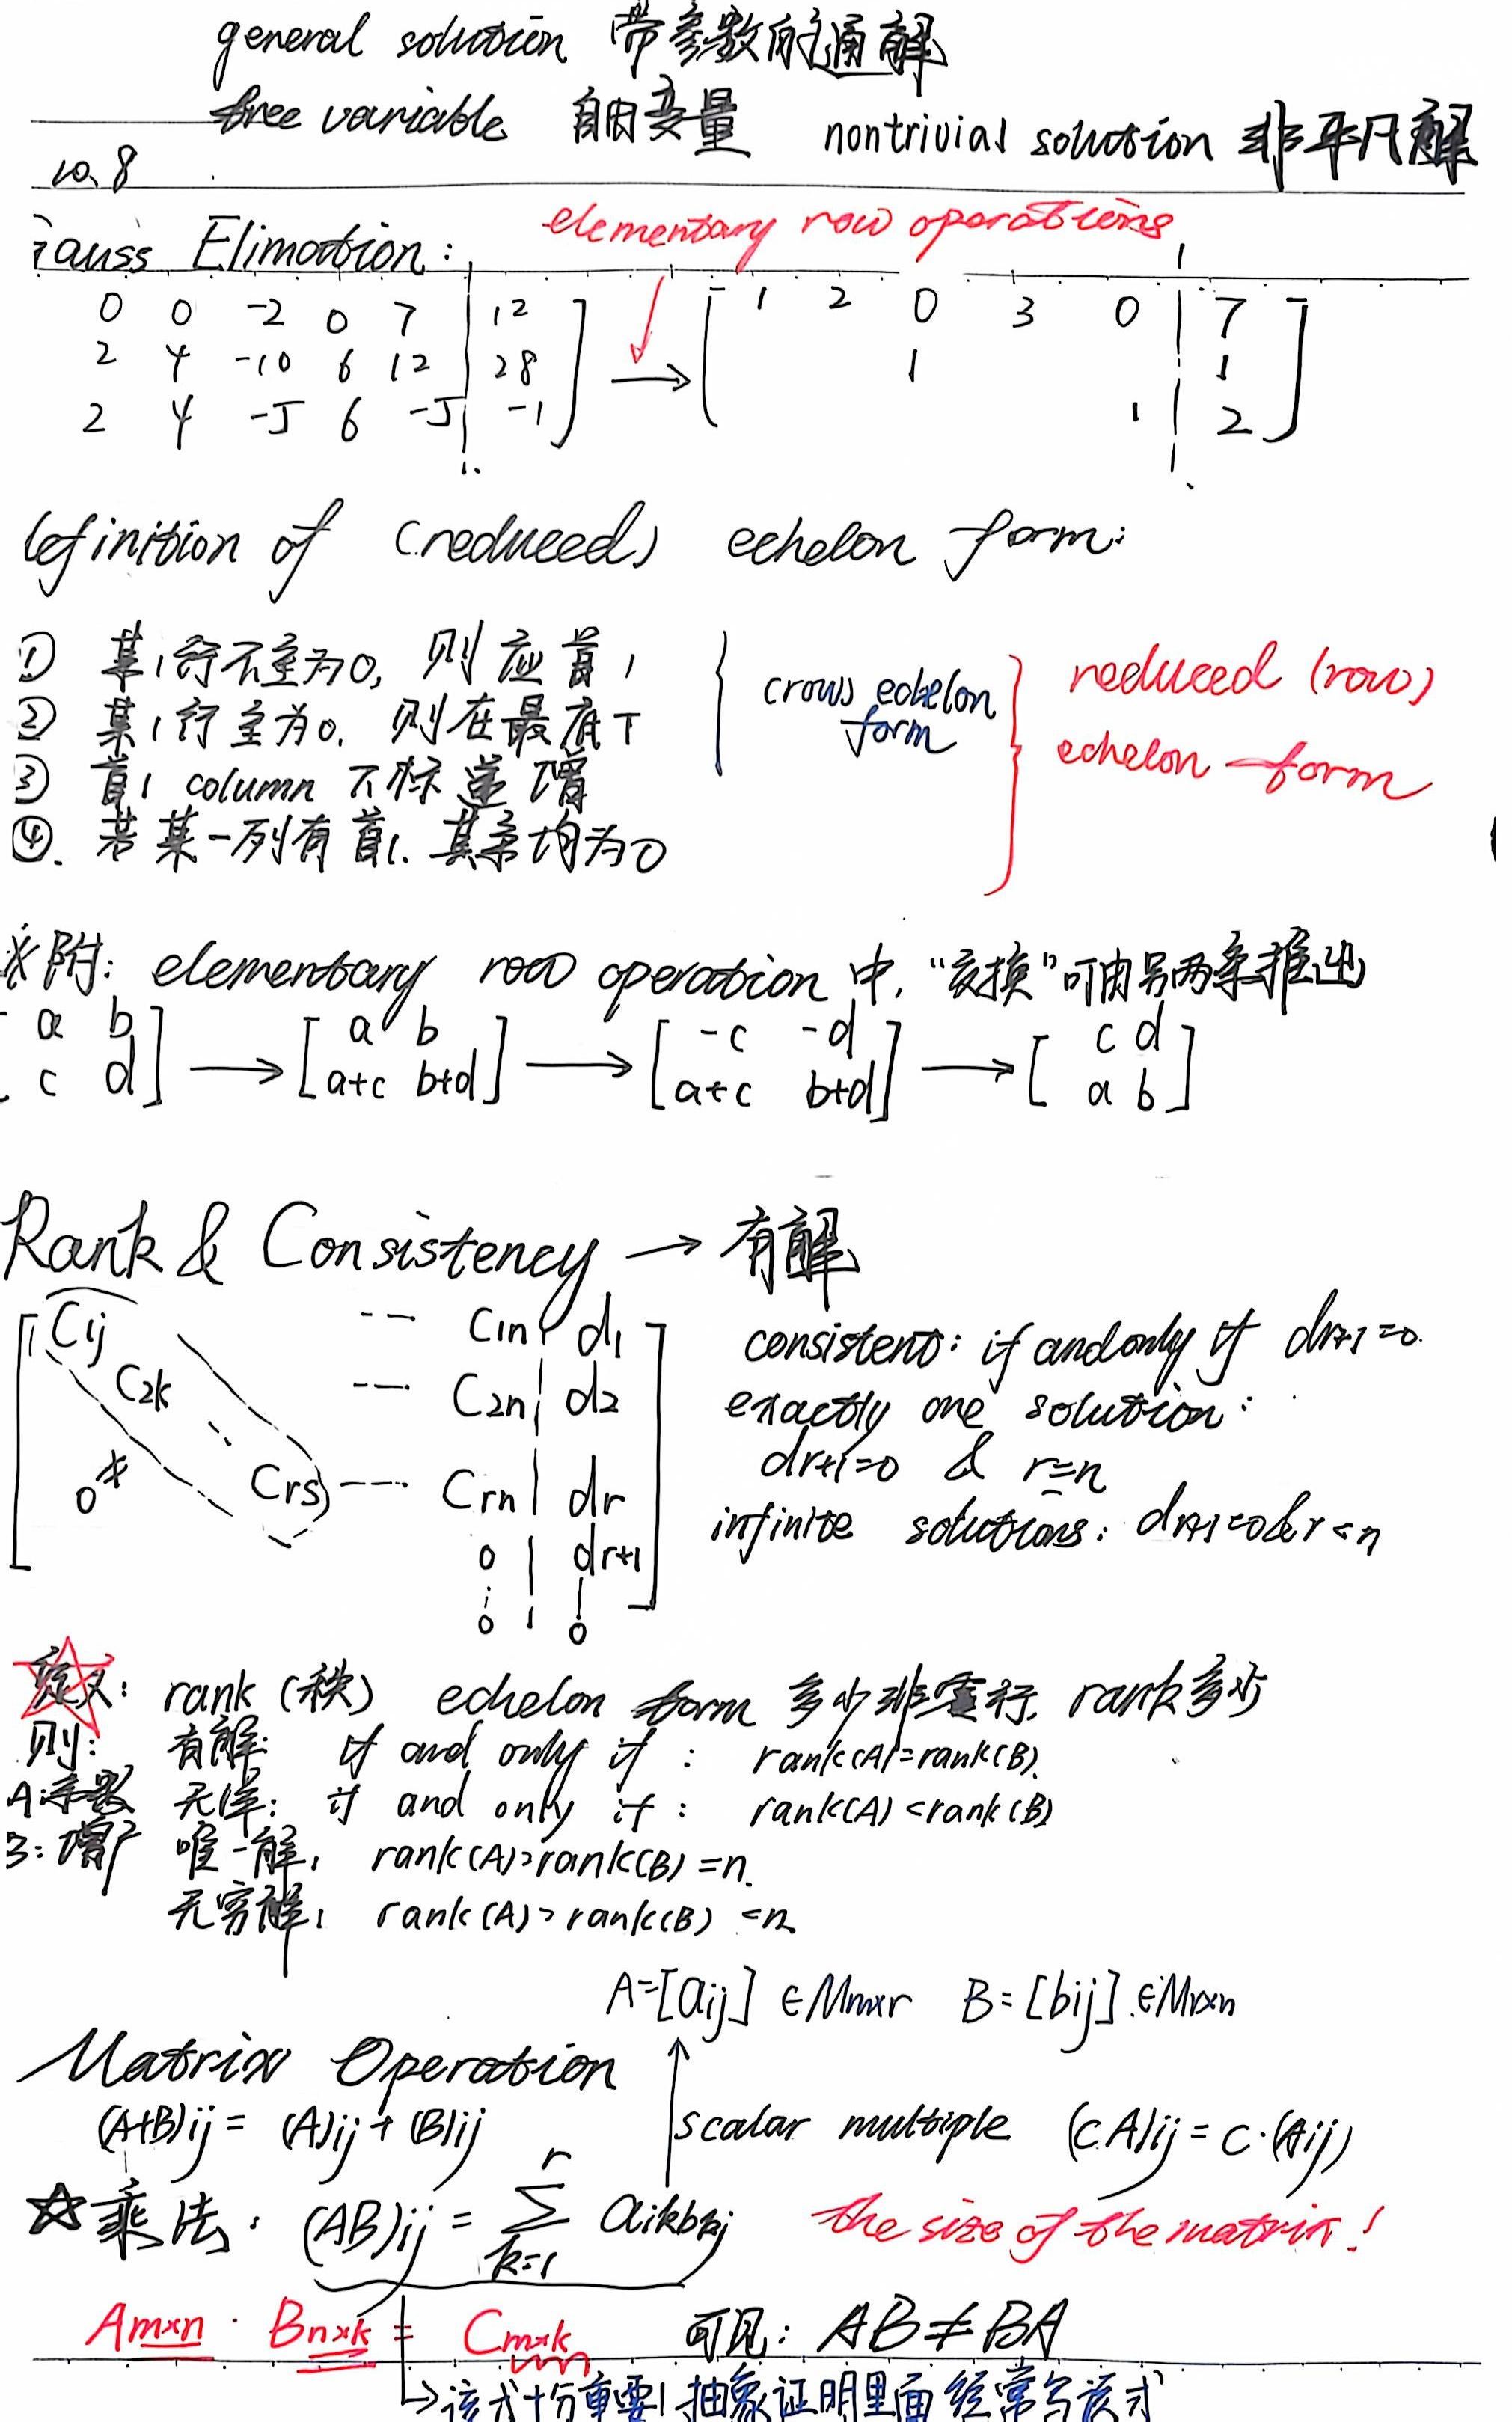 general solution 带参数的通解
free variable 自由变量 nontrivial solution 非平凡解
10.8
Gauss Elimation: elementary row operations
0 0 -2 0 7 | 12 ] → [ 1 2 0 3 0 | 7 ]
2 4 -10 6 12 | 28 1 | 1
2 4 -5 6 -5 | -1 1 | 2
definition of (reduced) echelon form:
① 某1行不全为0, 则应首1
② 某1行全为0, 则在最底下
③ 首1 column 下标递增
④. 若某一列有首1. 其余均为0
(row) echelon form
reduced (row) echelon form
※附: elementary row operation 中, "交换"可由另两条推出
[ a b ] → [ a b ] → [ -c -d ] → [ c d ]
[ c d ] [ a+c b+d ] [ a+c b+d ] [ a b ]
Rank & Consistency → 有解
C1j --- C1n | d1
C2k --- C2n | d2
0* Crs --- Crn | dr
0 | dr+1
0 | 0
consistent: if and only if dr+1=0.
exactly one solution:
dr+1=0 & r=n
infinite solutions: dr+1=0 & r<n
定义: rank (秩) echelon form 多少非零行, rank多少
则: 有解: if and only if: rank(A)=rank(B).
A:系数 无解: if and only if: rank(A)<rank(B)
B:增广 唯一解: rank(A)=rank(B)=n.
无穷解: rank(A)=rank(B)<n
A=[aij] ∈Mm×r B=[bij] ∈Mr×n
Matrix Operation
(A+B)ij = (A)ij + (B)ij scalar multiple (cA)ij = c·(Aij)
☆乘法: (AB)ij = r∑k=1 aikbkj the size of the matrix!
Am×n · Bn×k = Cm×k 可见: AB≠BA
↳该式十分重要! 抽象证明里面经常写该式